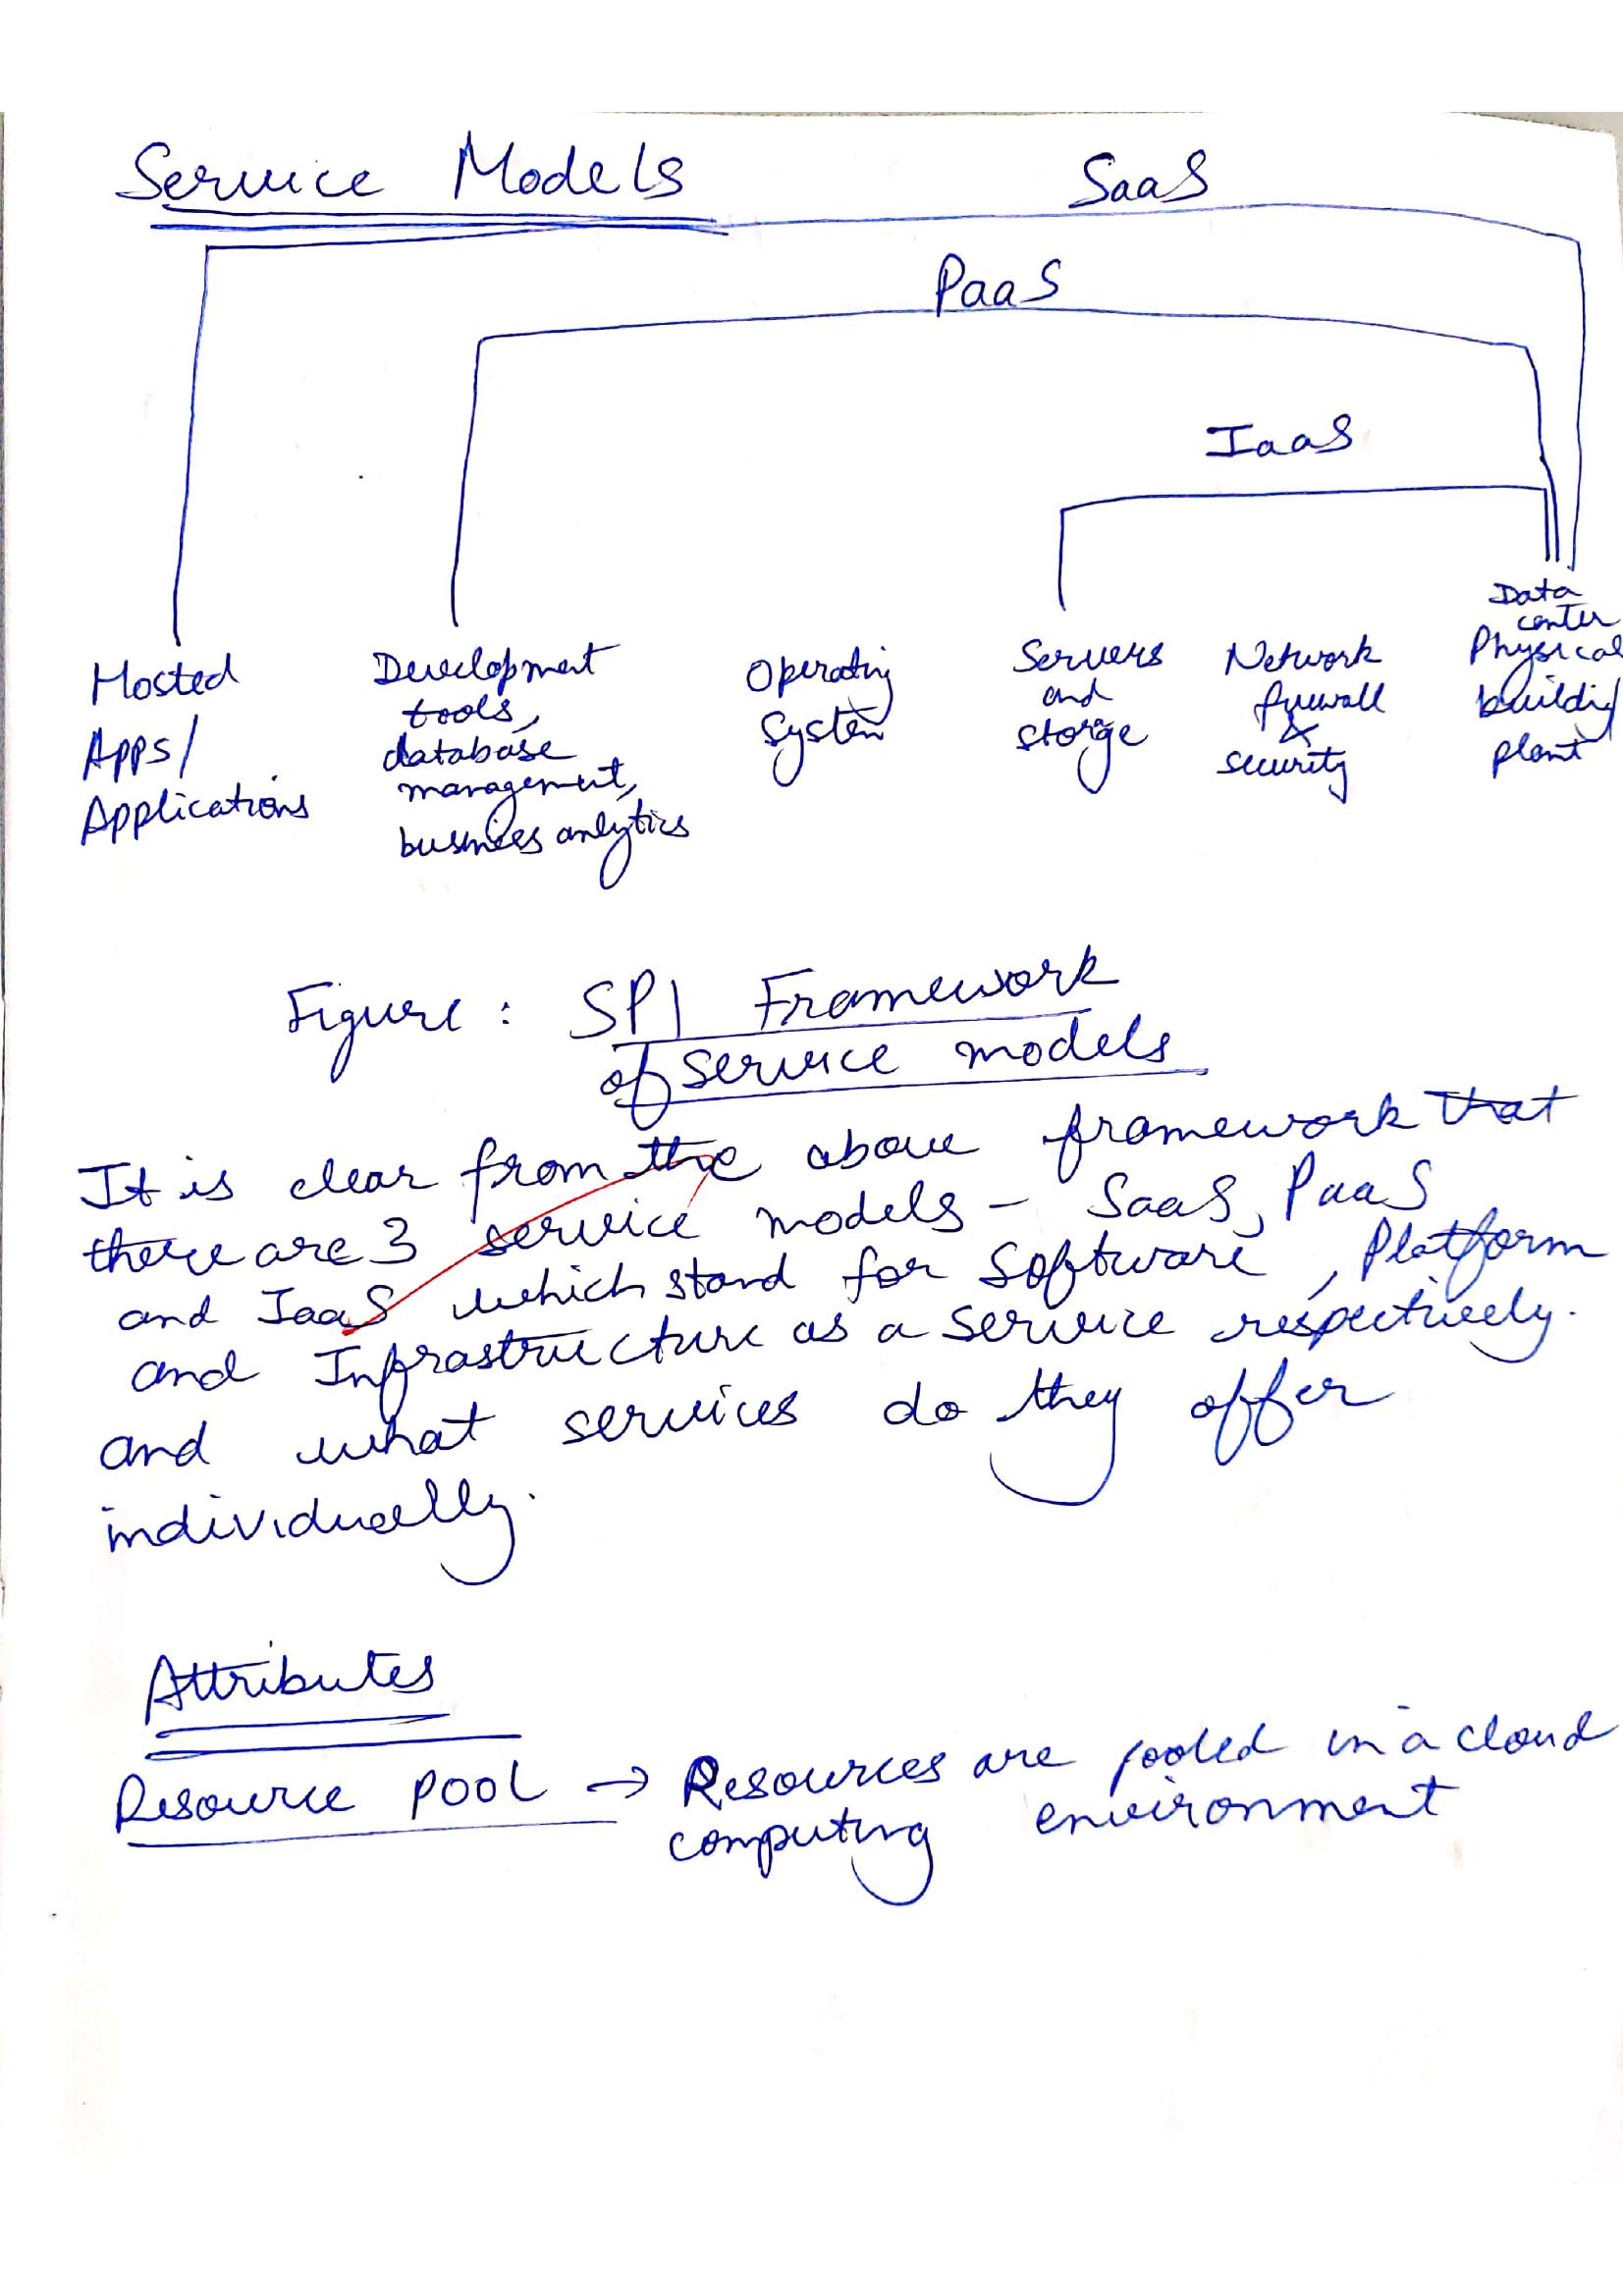 Service Models
SaaS
PaaS
IaaS
Hosted
Apps/
Applications
Development
tools,
database
management,
business anlytics
Operating
System
Servers
and
storge
Network
firewall
&
security
Data
center
Physical
buildig
plant
Figure : SPI Framework
of service models
It is clear from the above framework that
there are 3 service models - SaaS, PaaS
and IaaS which stand for Software, Platform
and Infrastructure as a service respectively.
and what services do they offer
individually.
Attributes
Resource pool → Resources are pooled in a cloud
computing environment